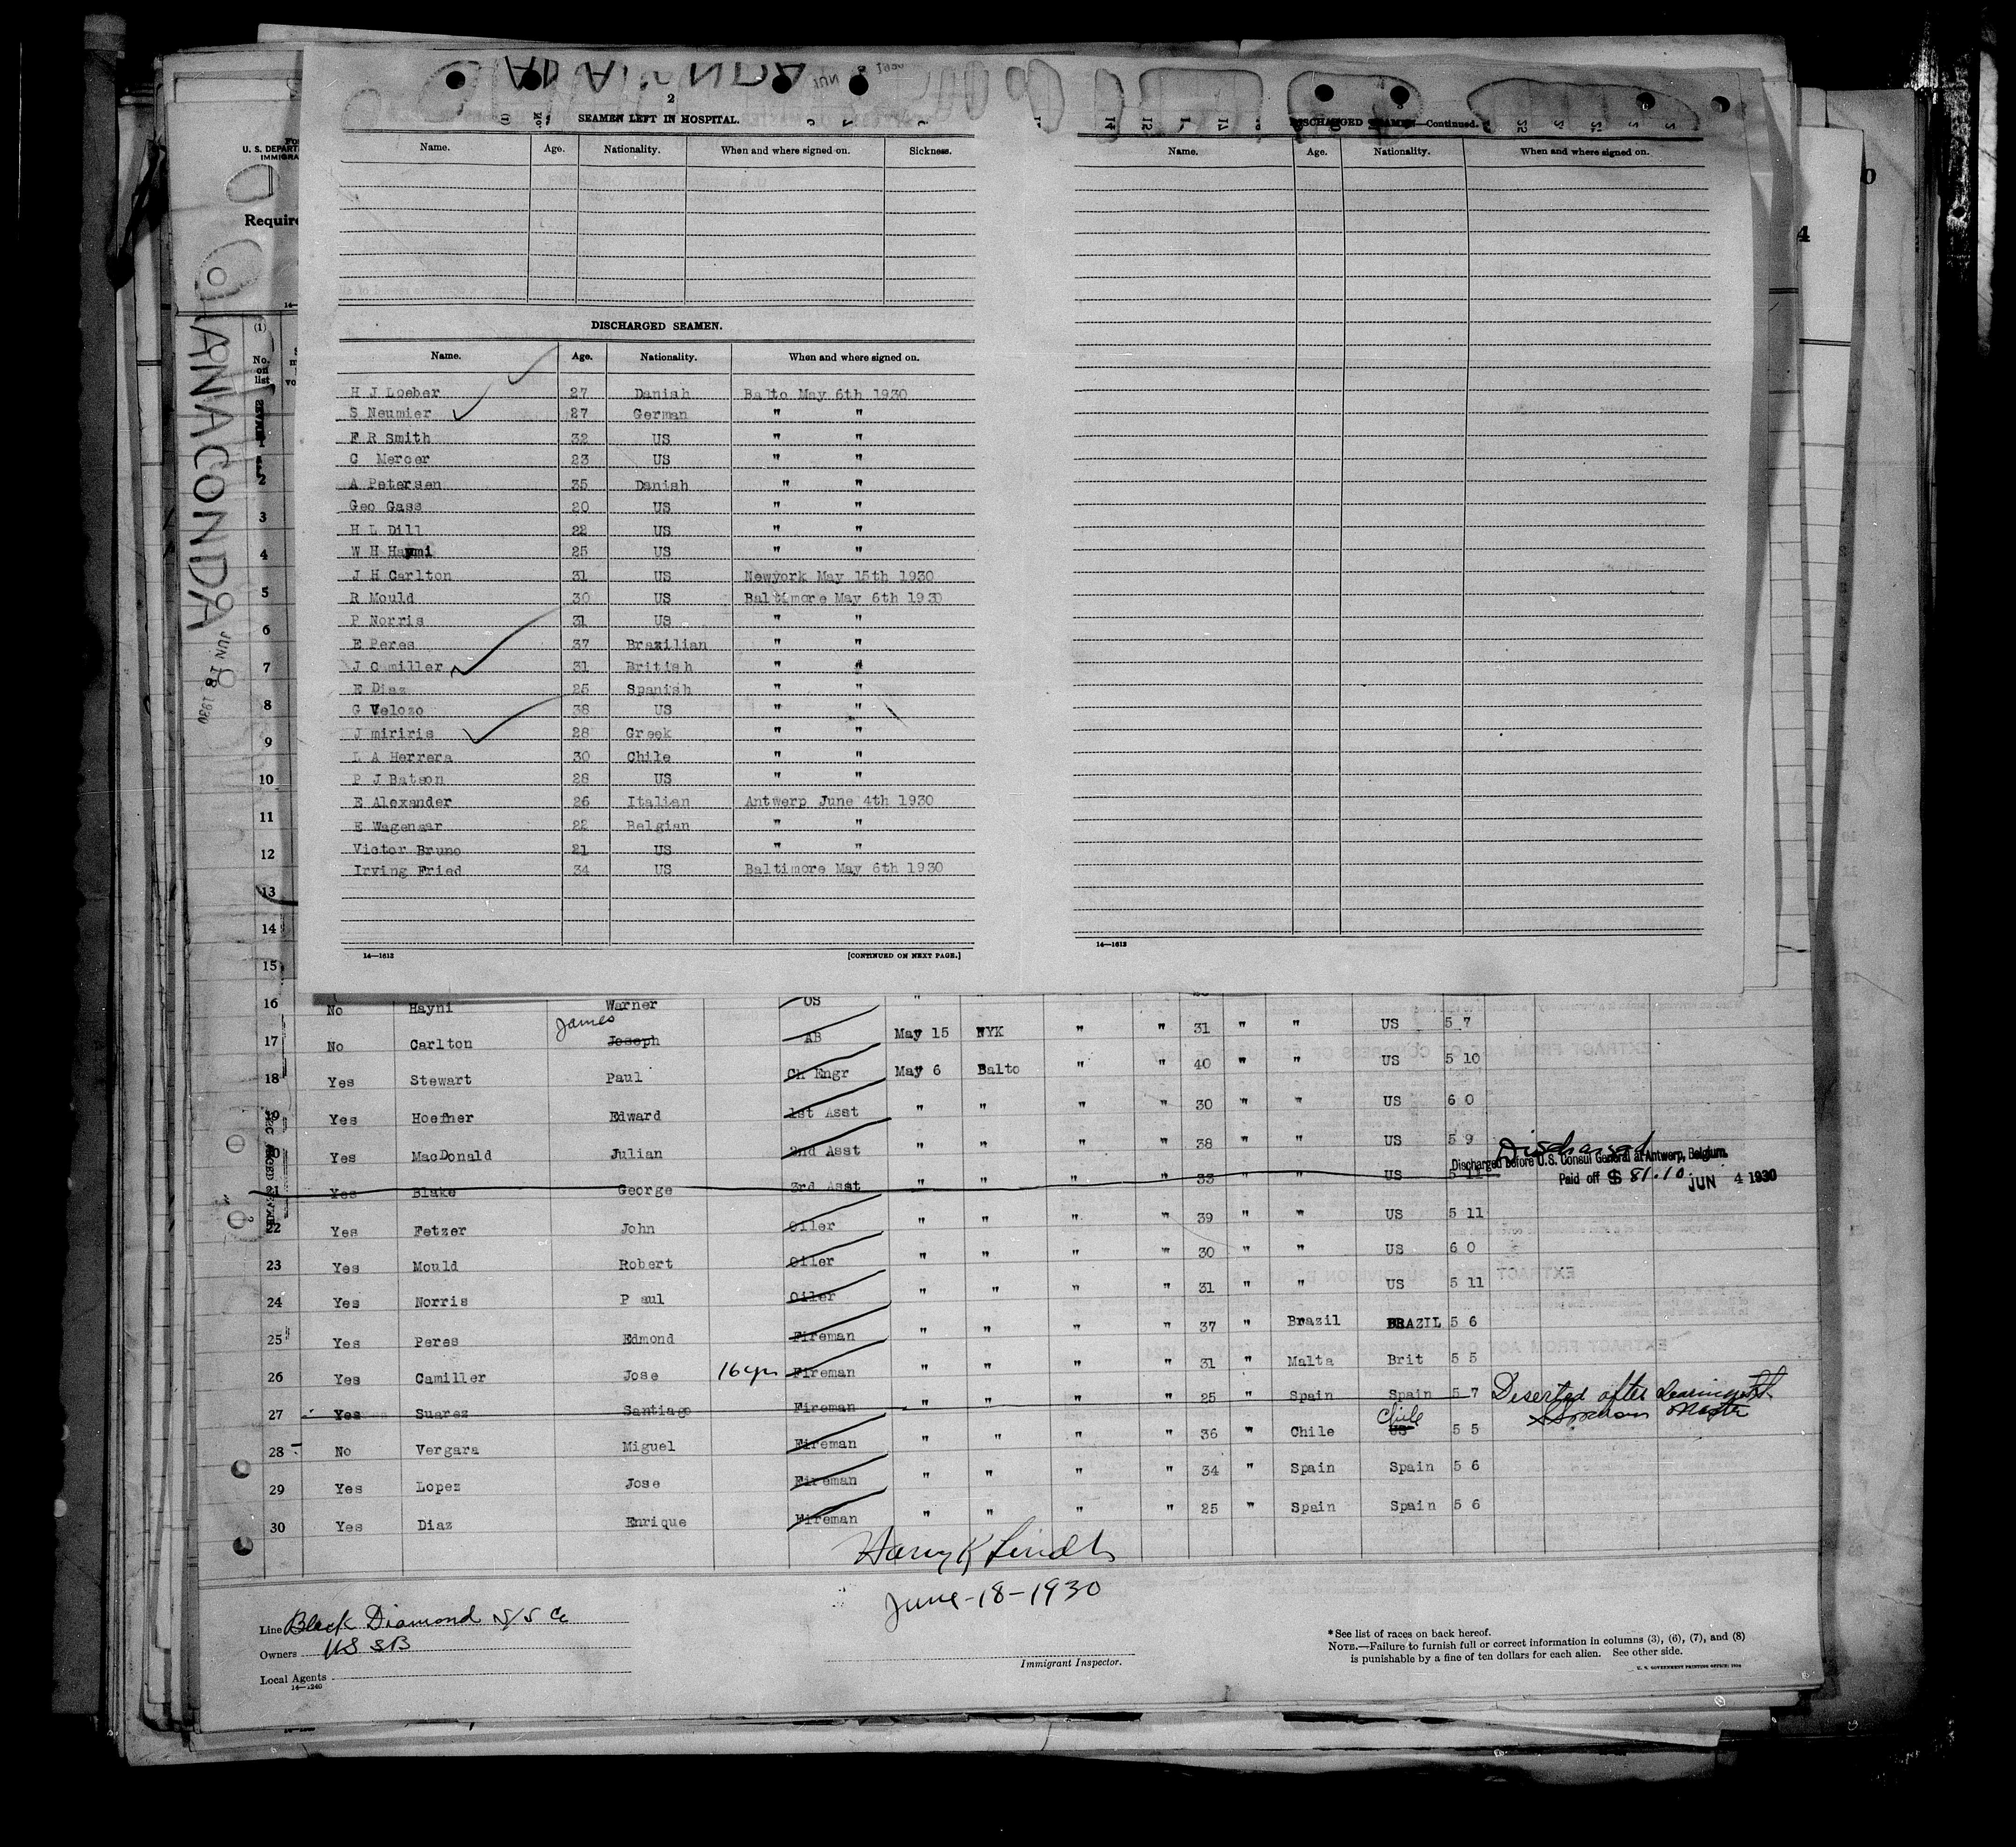 2
SEAMEN LEFT IN HOSPITAL.
Name. Age. Nationality. When and where signed on. Sickness.
DISCHARGED SEAMEN.
Name. Age. Nationality. When and where signed on.
H J Loeber 27 Danish Balto May 6th 1930
S Neumier 27 German " "
F R Smith 32 US " "
C Mercer 23 US " "
A Petersen 35 Danish " "
Geo Gass 20 US " "
H L Dill 22 US " "
W H Haymi 25 US " "
J H Carlton 31 US Newyork May 15th 1930
R Mould 30 US Baltimore May 6th 1930
P Norris 31 US " "
E Peres 37 Brazilian " "
J Camiller 31 British " "
E Diaz 25 Spanish " "
G Velozo 38 US " "
J miriris 28 Greek " "
L A Herrera 30 Chile " "
P J Batson 28 US " "
E Alexander 26 Italian Antwerp June 4th 1930
E Wagenaar 22 Belgian " "
Victor Bruno 21 US " "
Irving Fried 34 US Baltimore May 6th 1930
14—1612 [CONTINUED ON NEXT PAGE.]
DISCHARGED SEAMEN—Continued.
Name. Age. Nationality. When and where signed on.
14—1612
U. S. DEPART
IMMIGRA
Require
(1)
No. on list
ANACONDA
JUN 18 1930
2
3
4
5
6
7
8
9
10
11
12
13
14
15
16 No Hayni Warner OS "
17 No Carlton James Joseph AB May 15 NYK " " 31 " " US 5 7
18 Yes Stewart Paul Ch Engr May 6 Balto " " 40 " " US 5 10
19 Yes Hoefner Edward 1st Asst " " " " 30 " " US 6 0
20 Yes MacDonald Julian 2nd Asst " " " " 38 " " US 5 9
Discharged
Discharged before U.S. Consul General at Antwerp, Belgium.
21 Yes Blake George 3rd Asst " " " " 33 " " US 5 11 Paid off $ 81.10 JUN 4 1930
22 Yes Fetzer John Oiler " " " " 39 " " US 5 11
23 Yes Mould Robert Oiler " " " " 30 " " US 6 0
24 Yes Norris P aul Oiler " " " " 31 " " US 5 11
25 Yes Peres Edmond Fireman " " " " 37 " Brazil BRAZIL 5 6
26 Yes Camiller Jose 16 yrs Fireman " " " " 31 " Malta Brit 5 5
27 Yes Suarez Santiago Fireman " " " " 25 " Spain Spain 5 7 Deserted after
Master
28 No Vergara Miguel Fireman " " " " 36 " Chile Chile US 5 5
29 Yes Lopez Jose Fireman " " " " 34 " Spain Spain 5 6
30 Yes Diaz Enrique Fireman " " " " 25 " Spain Spain 5 6
Harry K
June-18-1930
Line Black Diamond S/S Co
Owners US SB
Local Agents
14—1240
Immigrant Inspector.
*See list of races on back hereof.
NOTE.—Failure to furnish full or correct information in columns (3), (6), (7), and (8)
is punishable by a fine of ten dollars for each alien. See other side.
0
4